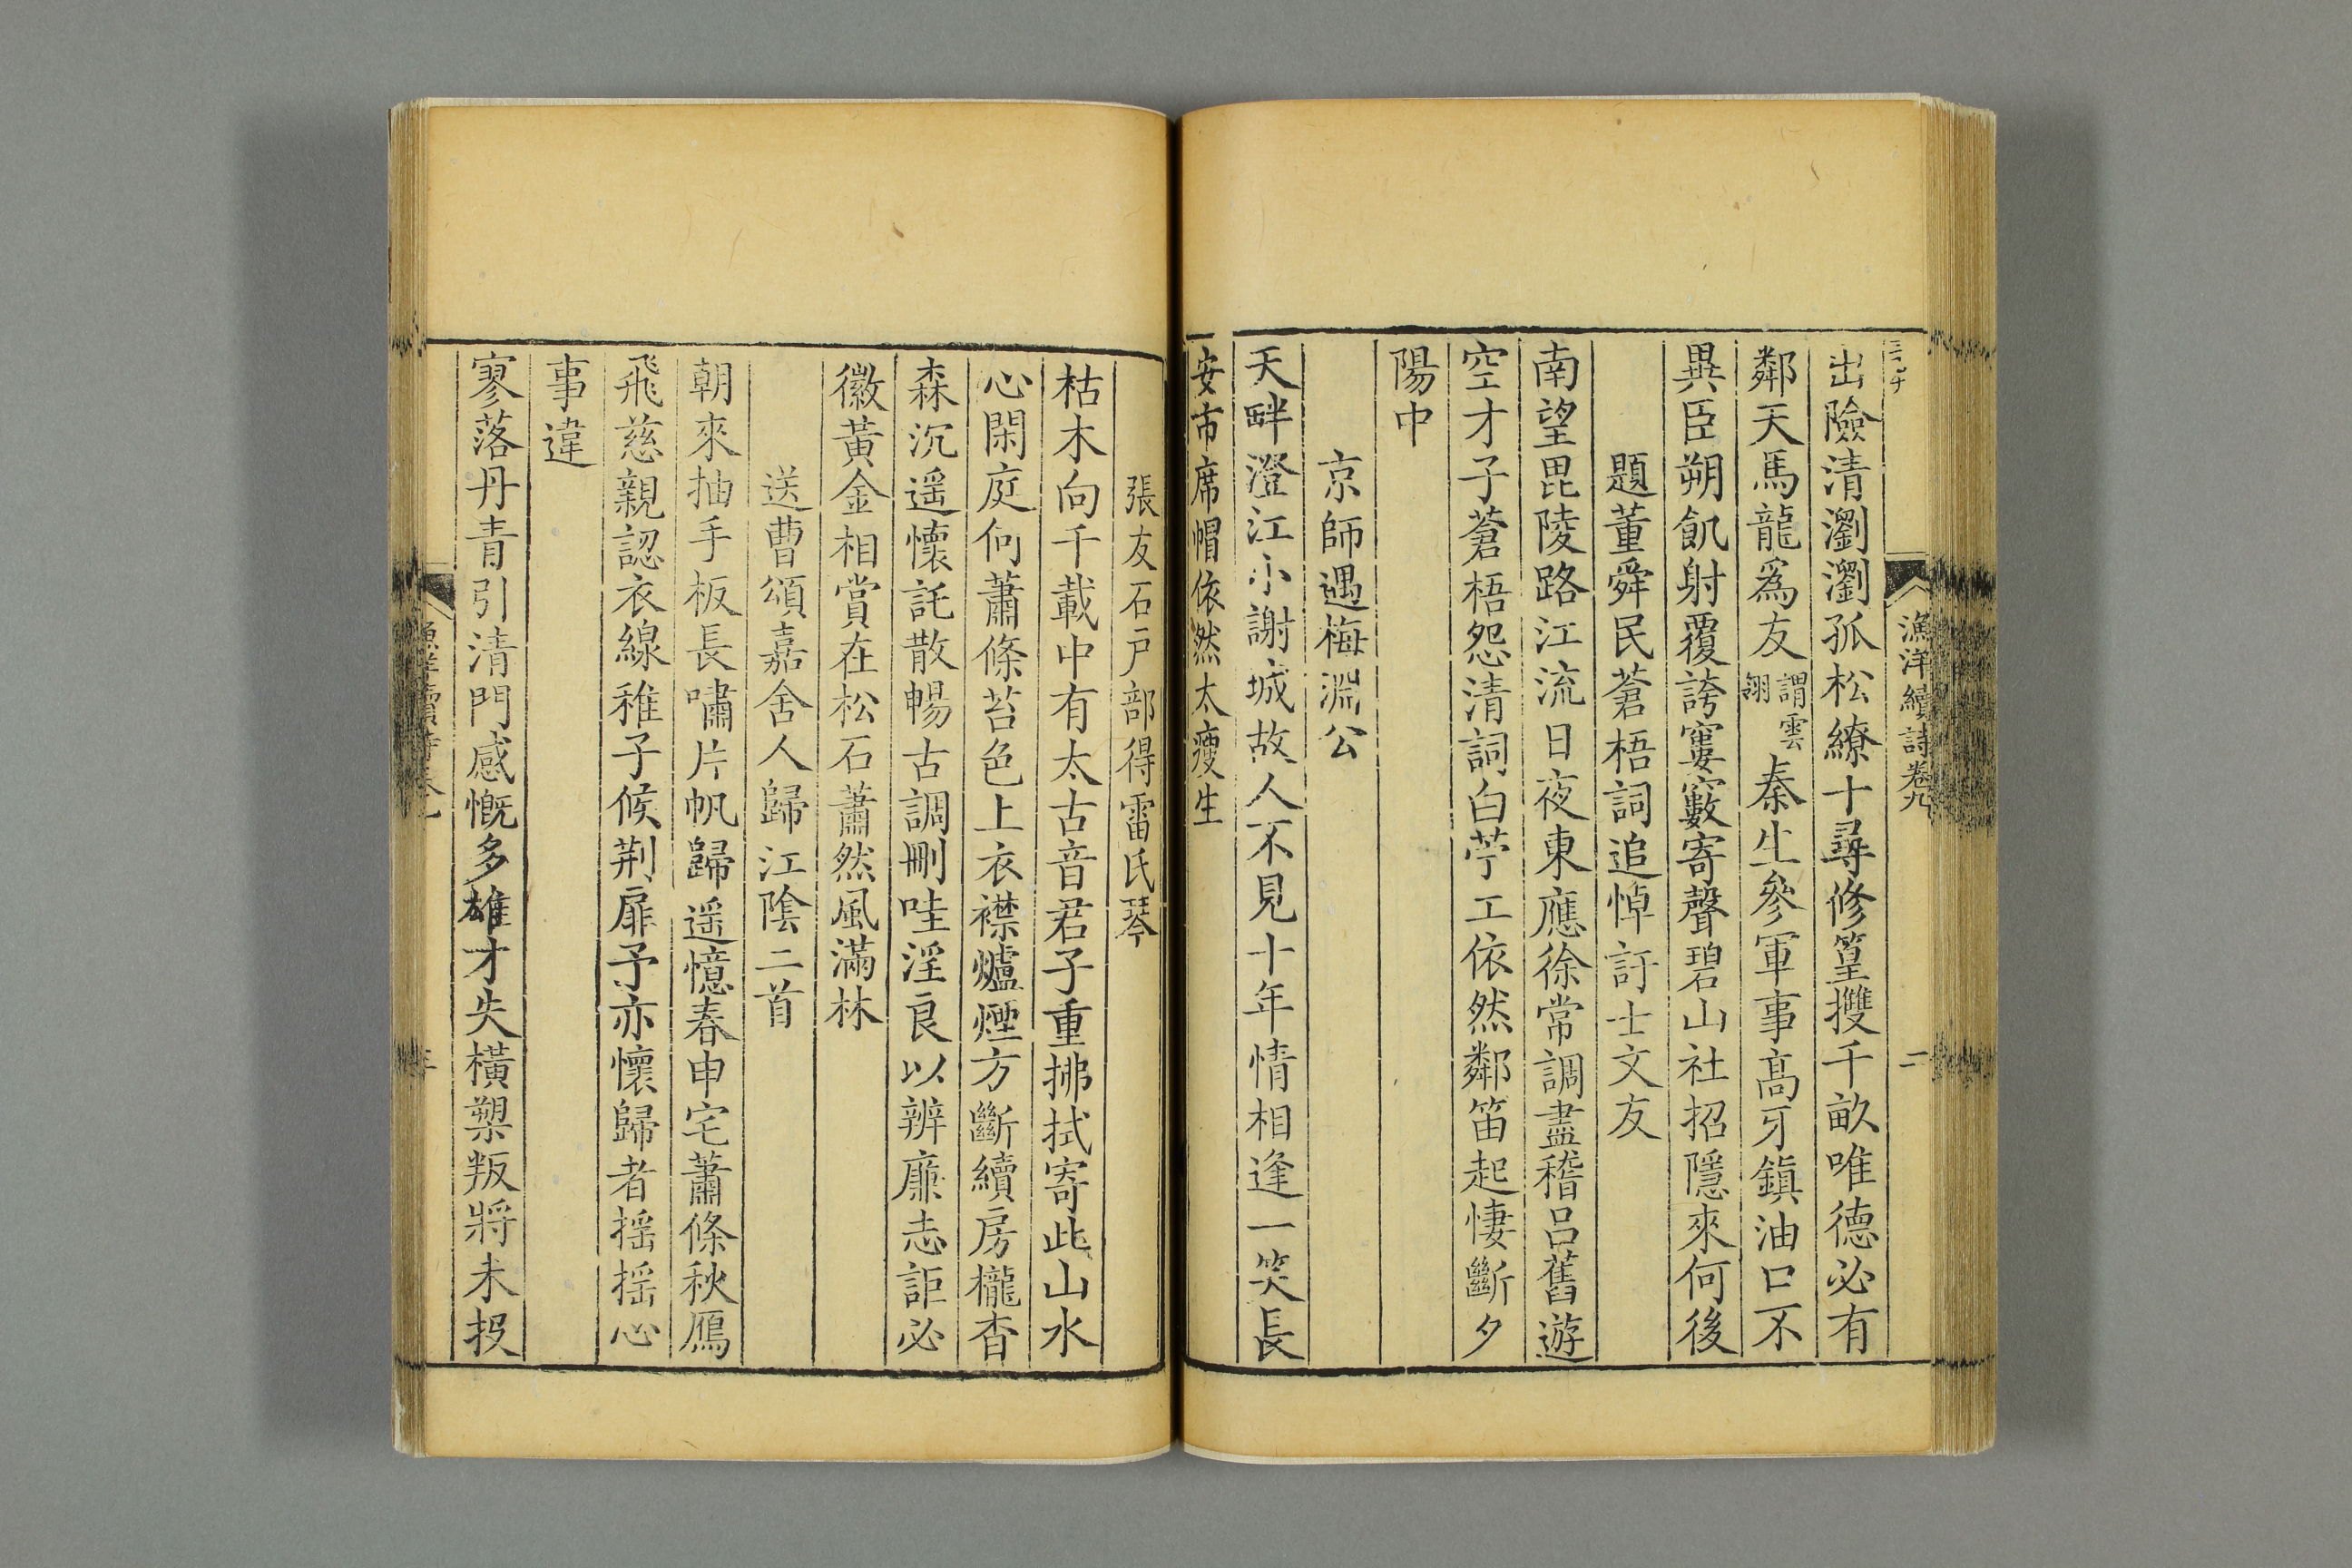 漁洋續詩卷九
二
出險清瀏瀏孤松繚十尋修篁擭千畝唯德必有
鄰天馬龍爲友謂雲翎秦生參軍事高牙鎮油口不
異臣朔飢射覆誇寠窶寄聲碧山社招隱來何後
題董舜民蒼梧詞追悼訏士文友
南望毘陵路江流日夜東應徐常調盡稽呂舊遊
空才子蒼梧怨清詞白苧工依然鄰笛起悽斷夕
陽中
京師遇梅淵公
天畔澄江小謝城故人不見十年情相逢一笑長
安市席帽依然太瘦生
張友石戸部得雷氏琴
枯木向千載中有太古音君子重拂拭寄此山水
心閑庭何蕭條苔色上衣襟爐煙方斷續房櫳杳
森沉遥懷託散暢古調刪哇淫良以辨廉志詎必
徽黃金相賞在松石蕭然風滿林
送曹頌嘉舍人歸江陰二首
朝來抽手板長嘯片帆歸遥憶春申宅蕭條秋鴈
飛慈親認衣線稚子候荆扉予亦懷歸者揺揺心
事違
寥落丹青引清門感慨多雄才失橫槊叛將未投